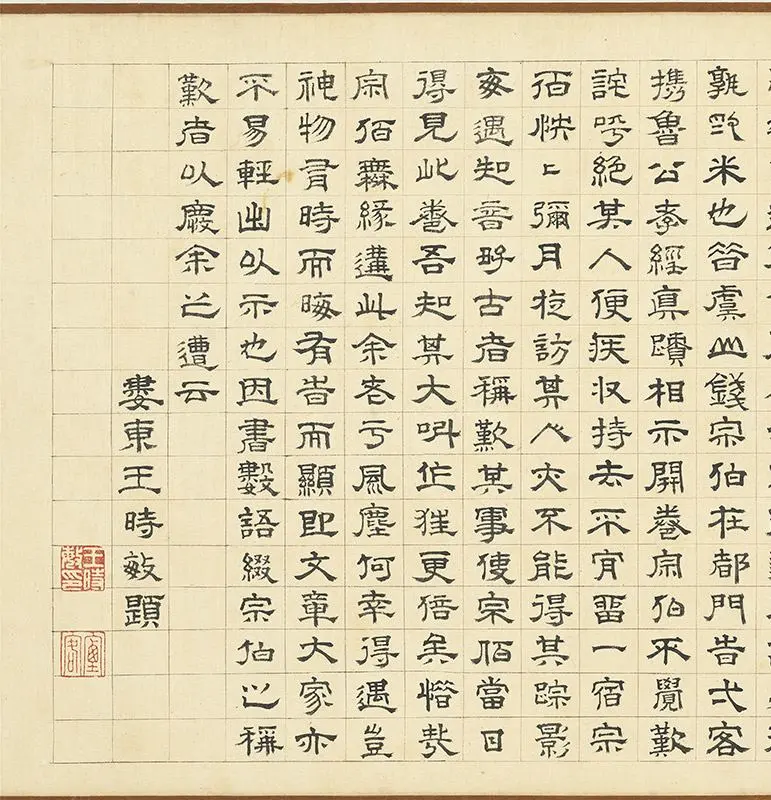 孰米也昔虞山錢宗伯在都門旹弌客
攜魯公孝經真蹟相示開卷宗伯不覺歎
詫呼絕其人便疾收持去不肯留一宿宗
伯怏〻彌月旋訪其人亦不能得其踪影
每遇知音好古者稱歎其事使宗伯當日
得見此卷吾知其大叫作狂更倍矣惜哉
宗伯無緣遘此余老于風塵何幸得遇豈
神物有時而晦有旹而顯即文章大家亦
不易輕出以示也因書數語綴宗伯之稱
歎者以慶余之遭云
婁東王時敏題
王時敏印